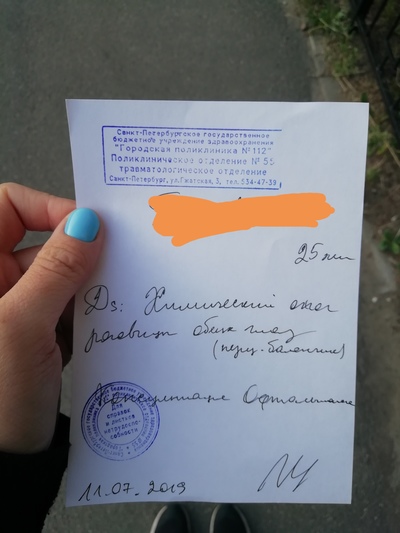 Санкт-Петербургское государственное
бюджетное учреждение здравоохранения
"Городская поликлиника № 112"
Поликлиническое отделение № 55
травматологическое отделение
Санкт-Петербург, ул.Гжатская, 3, тел. 534-47-39
25 лет
Ds: Химический ожог
роговиц обеих глаз
(перц. баллончик)
Консультация Офтальмолога
Для
справок
и листков
нетрудоспо-
собности
11.07.2019